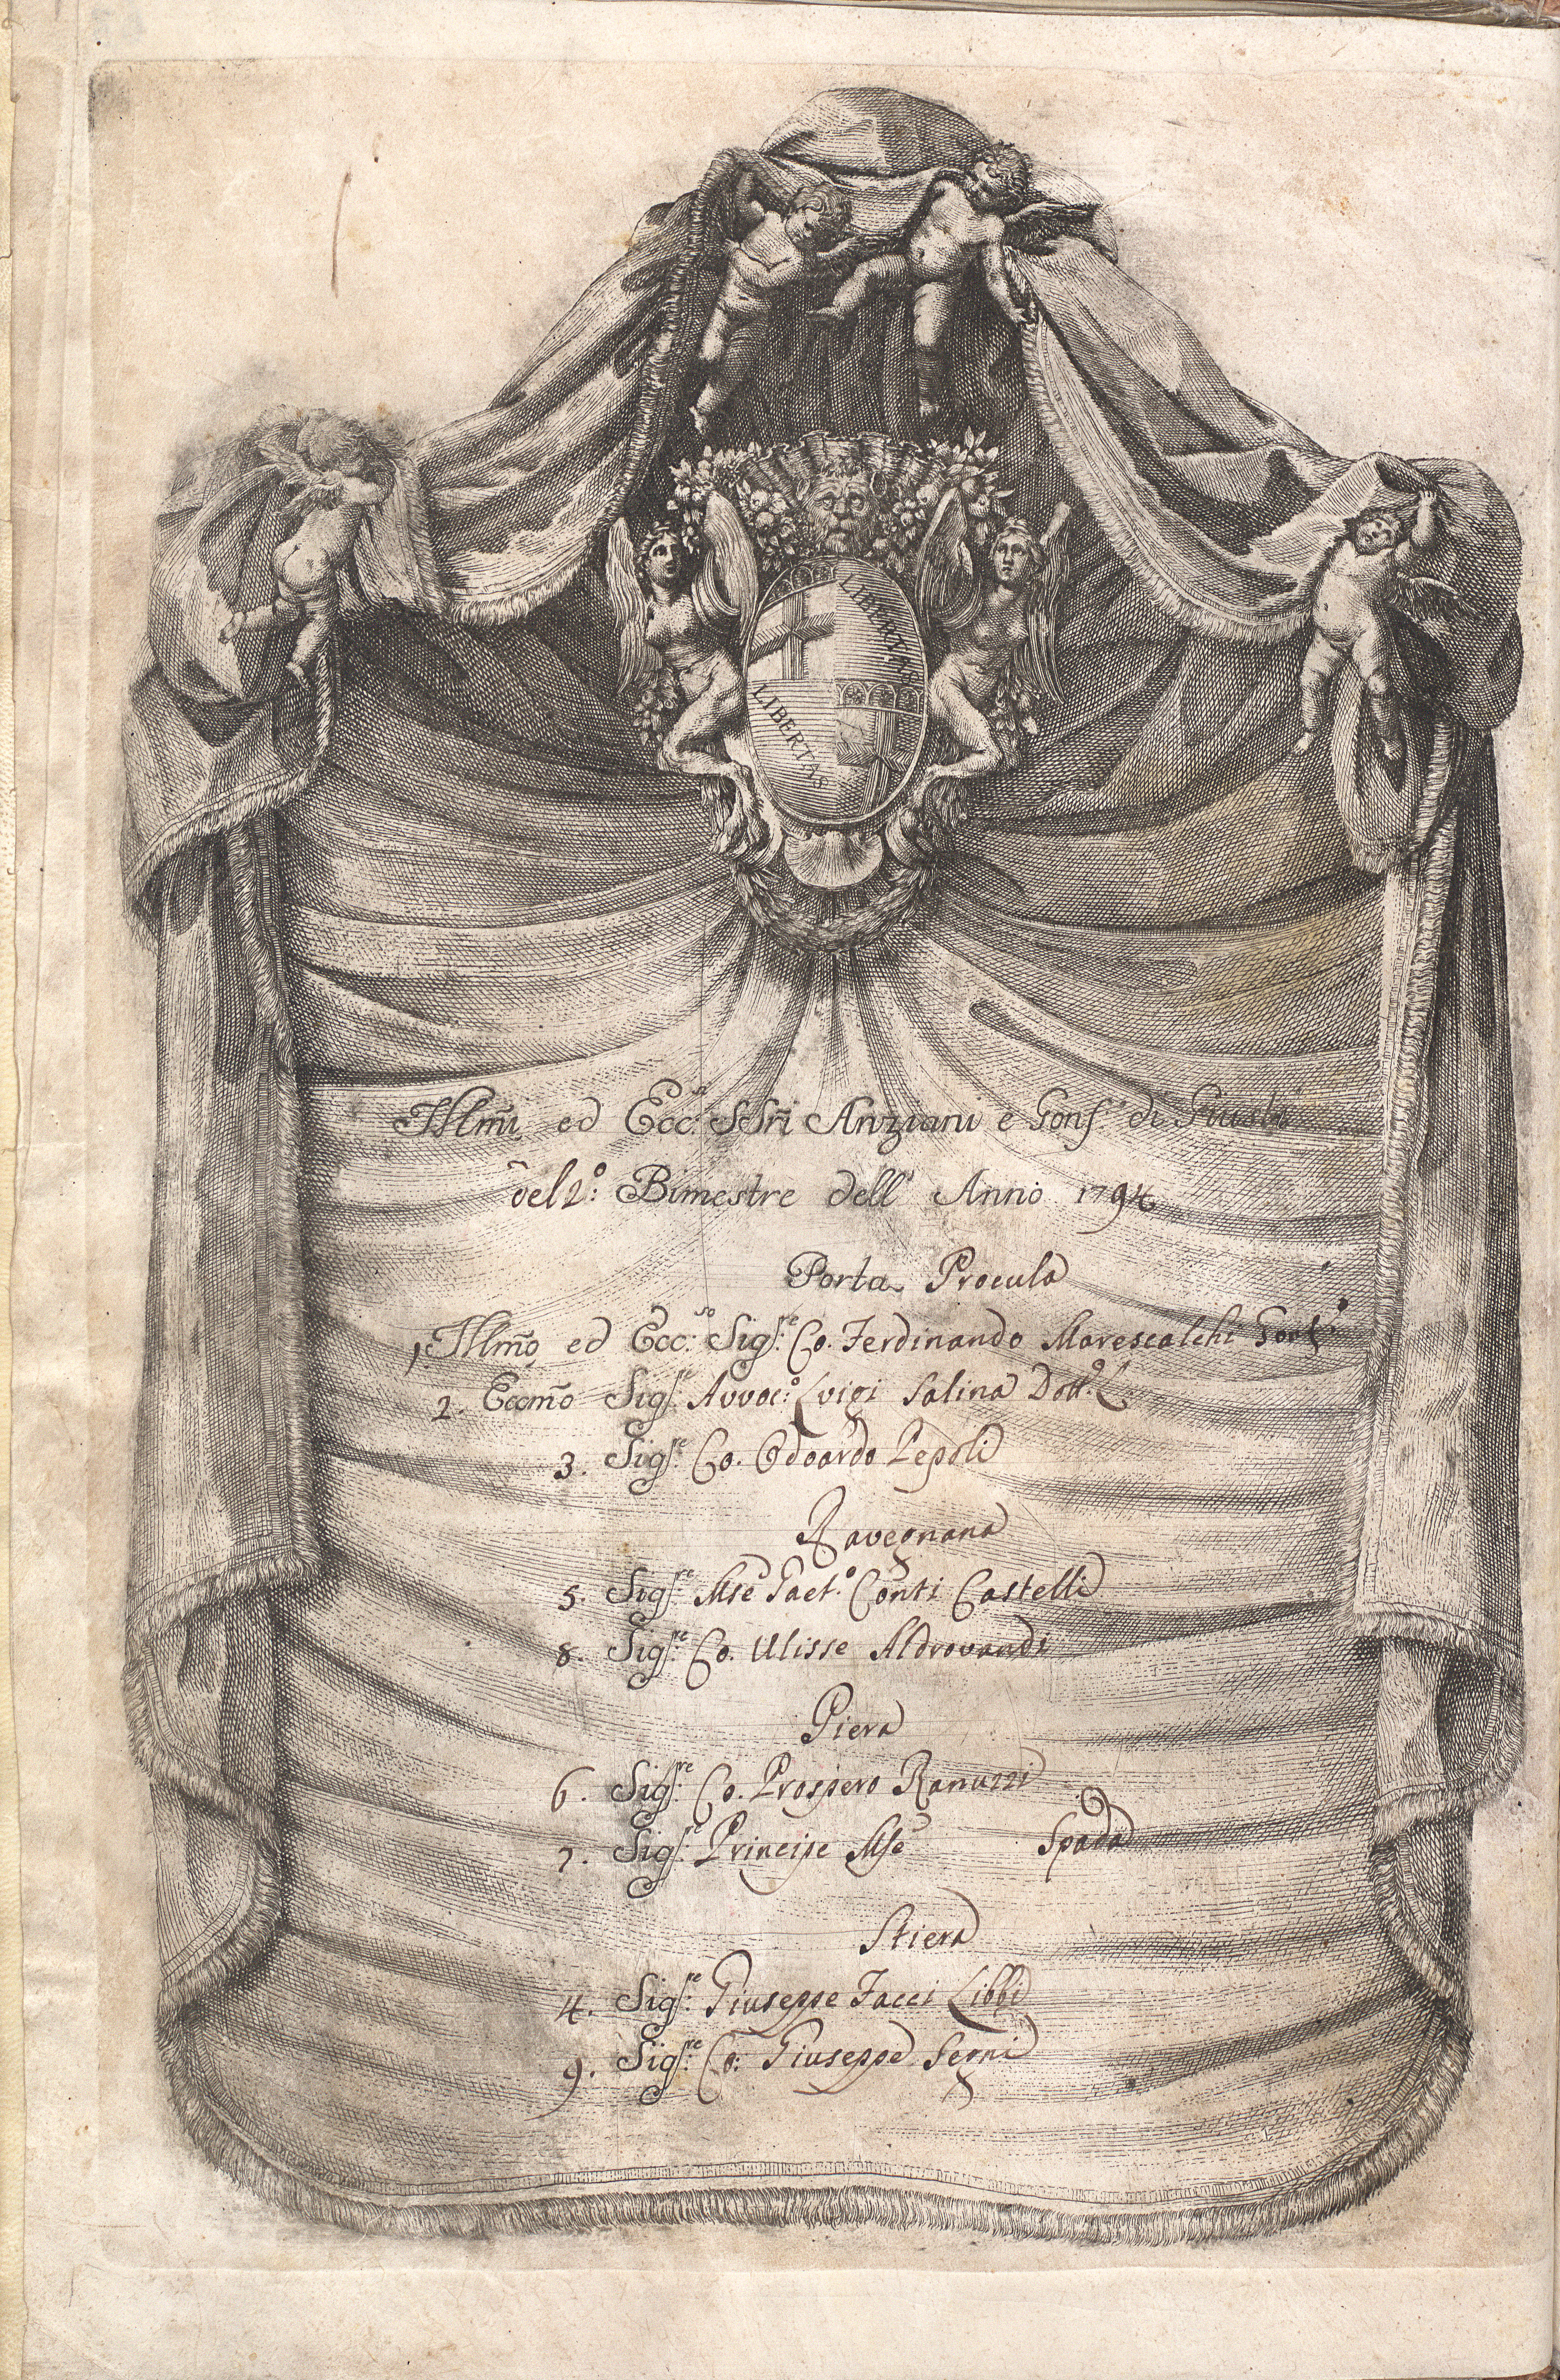 LIBERTAS
LIBERTAS
Illm̃i ed Ecc.ⁱ SSr̃i Anziani e Gonf.ᵉ di Giusta
del 2º: Bimestre dell' Anno 1794
Porta Procula
1, Illm̃o ed Ecc:ˢᵒ Sigʳᵉ Co. Ferdinando Marescalchi Gonf.ᵉ
2. Eccm̃o Sigʳᵉ Avvoc:º Luigi Salina Dott.ᵉ L.
3. Sigʳᵉ Co. Odoardo Pepoli
Ravegnana
5. Sigʳᵉ Mse Gaet.º Conti Castelli
8. Sigʳᵉ Co. Ulisse Aldrovandi
Piera
6. Sigʳᵉ Co. Prospero Ranuzzi
7. Sigʳᵉ Principe Mse Spada
Stiera
4. Sigʳᵉ Giuseppe Jacci Libbi
9. Sigʳᵉ Co: Giuseppe Segni